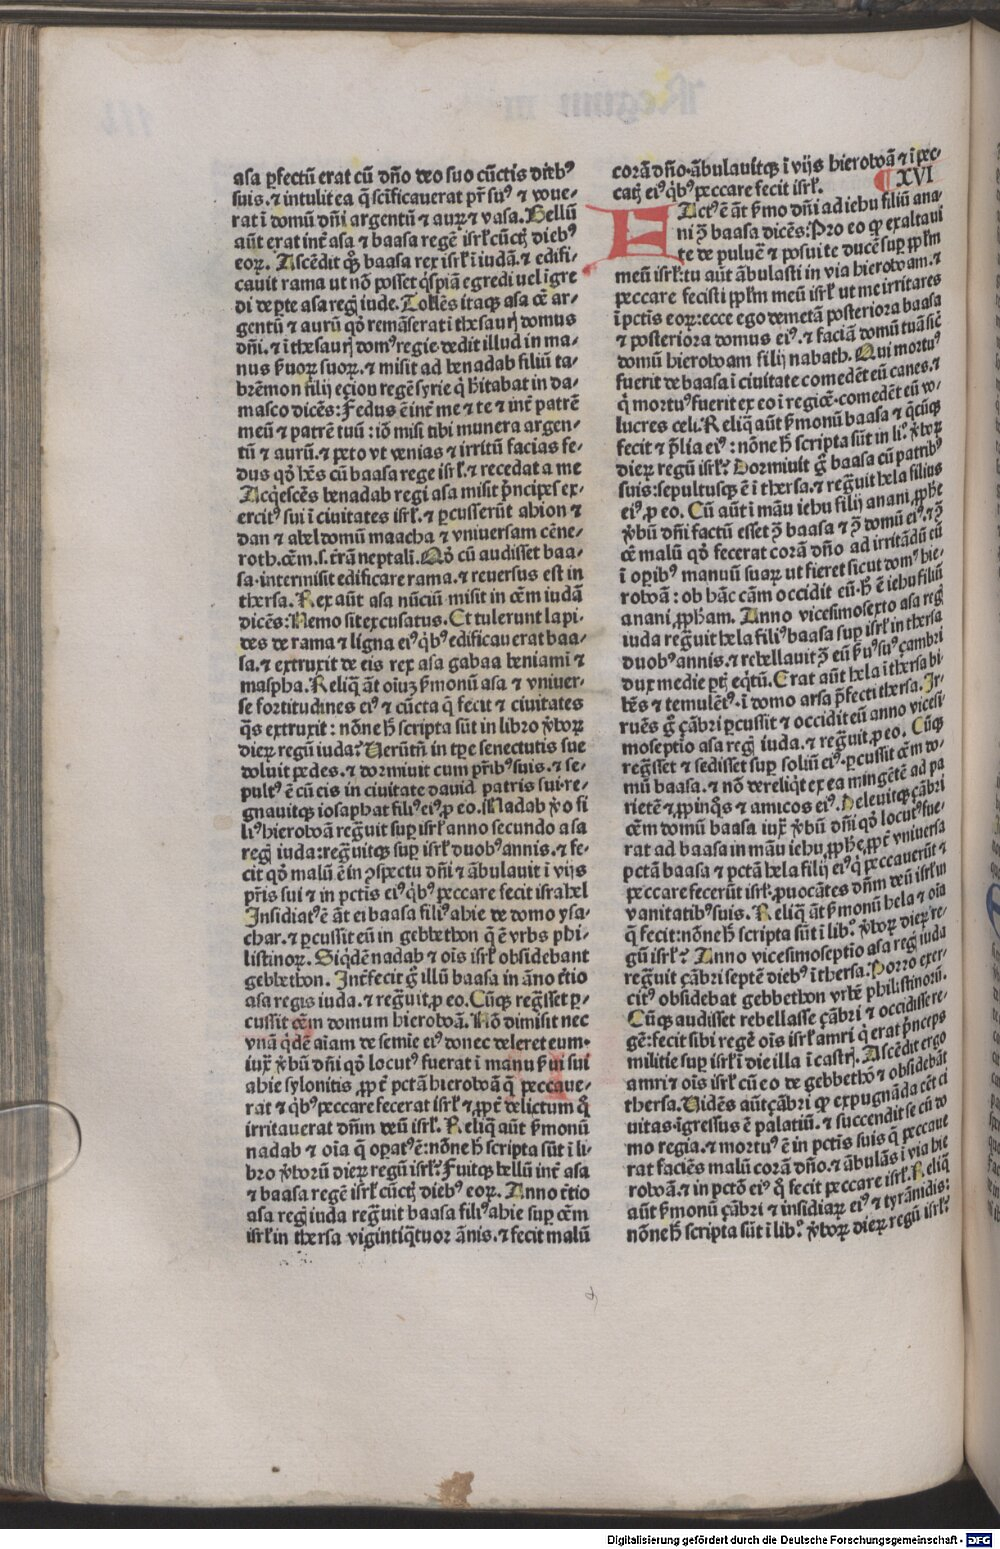 asa ꝑfectū erat cū dño deo suo cūctis dieb⁹
suis. ⁊ intulit ea q̄ sc̄ificauerat pr̄ su⁹ ⁊ voue-
rat ī domū dñi argentū ⁊ auꝝ ⁊ vasa. Bellū
aūt erat int̄ asa ⁊ baasa regē isrl̄ cūctꝭ dieb⁹
eoꝝ. Ascēdit q̄ꝫ baasa rex isrl̄ ī iudā. ⁊ edifi-
cauit rama ut nō posset q̇spiā egredi uel īgre
di de ꝑte asa regꝭ iude. Tollēs itaqꝫ asa oē ar-
gentū ⁊ aurū qḋ remāserat ī thesaurꝭ domus
dñi. ⁊ ī thesaurꝭ dom⁹ regie dedit illud in ma-
nus ẜuoꝝ suoꝝ. ⁊ misit ad benadab filiū ta-
brēmon filij eçion regē syrie q̇ h̄itabat in da-
masco dicēs: Fedus ē int̄ me ⁊ te ⁊ int̄ patrē
meū ⁊ patrē tuū: iō misi tibi munera argen-
tū ⁊ aurū. ⁊ peto vt venias ⁊ irritū facias fe-
dus qḋ hēs cū baasa rege isrl̄. ⁊ recedat a me
Acq̇escēs benadab regi asa misit p̄ncipes ex-
ercit⁹ sui ī ciuitates isrl̄. ⁊ ꝑcusserūt ahion ⁊
dan ⁊ abel domū maacha ⁊ vniuersam cēne-
roth. oēm. s. trā neptali. Qḋ cū audisset baa-
sa. intermisit edificare rama. ⁊ reuersus est in
thersa. Rex aūt asa nūciū misit in oēm iudā
dicēs: Nemo sit excusatus. Et tulerunt lapi-
des de rama ⁊ ligna ei⁹ q̇b⁹ edificauerat baa-
sa. ⁊ extruxit de eis rex asa gabaa beniamī ⁊
maspha. Reliq̄ āt oīuꝫ ẜmonū asa ⁊ vniuer-
se fortitudines ei⁹ ⁊ cūcta q̄ fecit ⁊ ciuitates
q̄s extruxit: nōne h̄ scripta sūt in libro ꝟboꝝ
dieꝝ regū iuda? Uerūtñ in tꝑe senectutis sue
doluit pedes. ⁊ dormiuit cum pr̄ib⁹ suis. ⁊ se-
pult⁹ ē cū eis in ciuitate dauid patris sui. re-
gnauitqꝫ iosaphat fili⁹ ei⁹ ꝓ eo. Nadab ꝟo fi
li⁹ hieroboā regͣuit suꝑ isrl̄ anno secundo asa
regꝭ iuda: regͣuitqꝫ suꝑ isrl̄ duob⁹ annis. ⁊ fe-
cit qḋ malū ē in ↄspectu dñi ⁊ ābulauit ī vijs
pr̄is sui ⁊ in pctīs ei⁹ q̇b⁹ peccare fecit israhel
Insidiat⁹ ē āt ei baasa fili⁹ ahie de domo ysa-
char. ⁊ ꝑcussit eū in gebbethon q̄ ē vrbs phi-
listinoꝝ. Siq̇dē nadab ⁊ oīs isrl̄ obsidebant
gebbethon. Int̄fecit gͦ illū baasa in āno t̄tio
asa regis iuda. ⁊ regͣuit ꝓ eo. Cūqꝫ regͣsset ꝑ-
cussit oēm domum hieroboā. Nō dimisit nec
vnā q̇dē aīam de semie ei⁹ donec deleret eum.
iux̄ ꝟbū dñi qḋ locut⁹ fuerat ī manu ẜui sui
ahie sylonitis ꝓpt̄ pctā hieroboā q̄ peccaue-
rat ⁊ q̇b⁹ peccare fecerat isrl̄ ⁊ ꝓpt̄ delictum q̊
irritauerat dn̄m deū isrl̄. Reliq̄ aūt ẜmonū
nadab ⁊ oīa q̄ oꝑat⁹ ē: nōne h̄ scripta sūt ī li-
bro ꝟborū dieꝝ regū isrl̄? Fuitqꝫ bellū int̄ asa
⁊ baasa regē isrl̄ cūctꝭ dieb⁹ eoꝝ. Anno t̄tio
asa regꝭ iuda regͣuit baasa fili⁹ ahie suꝑ oēm
isrl̄ in thersa vigintiq̇tuor ānis. ⁊ fecit malū
corā dño. ābulauitqꝫ ī vijs hieroboā ⁊ ī pec-
catꝭ ei⁹ q̇b⁹ peccare fecit isrl̄.
XVI
FAct⁹ ē āt ẜmo dñi ad iehu filiū ana
ni ↄ̄ baasa dicēs: Pro eo ꝙ exaltaui
te de puluē ⁊ posui te ducē suꝑ ppl̄m
meū isrl̄: tu aūt ābulasti in via hieroboam. ⁊
peccare fecisti ppl̄m meū isrl̄ ut me irritares
ī pctīs eoꝝ: ecce ego demetā posteriora baasa
⁊ posteriora domus ei⁹. ⁊ faciā domū tuā sic̄
domū hieroboam filij nabath. Qui mortu⁹
fuerit de baasa ī ciuitate comedēt eū canes. ⁊
q̇ mortu⁹ fuerit ex eo ī regiōe. comedēt eū vo-
lucres celi. Reliq̄ aūt ẜmonū baasa ⁊ q̄cūqꝫ
fecit ⁊ p̄lia ei⁹: nōne h̄ scripta sūt in li⁰ ꝟboꝝ
dieꝝ regū isrl̄? Dormiuit gͦ baasa cū patrib⁹
suis: sepultusqꝫ ē ī thersa. ⁊ regͣuit hela filius
ei⁹ ꝓ eo. Cū aūt ī māu iehu filij anani ꝓphē
ꝟbū dñi factū esset ↄ̄ baasa ⁊ ↄ̄ domū ei⁹. ⁊ ↄ̄
oē malū qḋ fecerat corā dño ad irritādū eū
ī oꝑib⁹ manuū suaꝝ ut fieret sicut dom⁹ hie-
roboā: ob hāc cām occidit eū. h̄ ē iehu filiū
anani ꝓpham. Anno vicesimosexto asa regꝭ
iuda regͣuit hela fili⁹ baasa suꝑ isrl̄ in thersa
duob⁹ annis. ⁊ rebellauit ↄ̄ eū ẜu⁹ su⁹ çambri
dux medie ꝑtꝭ eq̇tū. Erat aūt hela ī thersa bi-
bēs ⁊ temulēt⁹. ī domo arsa p̄fecti thersa. Ir-
ruēs gͦ çābri ꝑcussit ⁊ occidit eū anno vicesi-
moseptio asa regꝭ iuda. ⁊ regͣuit ꝓ eo. Cūqꝫ
regͣsset ⁊ sedisset suꝑ soliū ei⁹. ꝑcussit oēm do-
mū baasa. ⁊ nō dereliq̇t ex ea mingētē ad pa
rietē ⁊ ꝓpinq̊s ⁊ amicos ei⁹. Deleuitqꝫ çābri
oēm domū baasa iux̄ ꝟbū dñi qḋ locut⁹ fue-
rat ad baasa in māu iehu ꝓphē. ꝓpt̄ vniuersa
pctā baasa ⁊ pctā hela filij ei⁹ q̇ peccauerūt ⁊
peccare fecerūt isrl̄. ꝓuocātes dn̄m deū isrl̄ in
vanitatib⁹ suis. Reliq̄ āt ẜmonū hela ⁊ oīa
q̄ fecit: nōne h̄ scripta sūt ī lib⁰ ꝟboꝝ dieꝝ re-
gū isrl̄? Anno vicesimoseptio asa regꝭ iuda
regͣuit çābri septē dieb⁹ ī thersa. Porro exer-
cit⁹ obsidebat gebbethon vrbē philistinorū.
Cūqꝫ audisset rebellasse çābri ⁊ occidisse re-
gē: fecit sibi regē oīs isrl̄ amri q̇ erat p̄nceps
militie suꝑ isrl̄ ī die illa ī castrꝭ. Ascēdit ergo
amri ⁊ oīs isrl̄ cū eo de gebbethō ⁊ obsidebāt
thersa. Uidēs aūt çābri ꝙ expugnāda eēt ci
uitas. īgressus ē palatiū. ⁊ succendit se cū do
mo regia. ⁊ mortu⁹ ē in pctīs suis q̄ peccaue
rat faciēs malū corā dño. ⁊ ābulās ī via hie
roboā. ⁊ in pctō ei⁹ q̊ fecit peccare isrl̄. Reliq̄
aūt ẜmonū çābri ⁊ insidiaꝝ ei⁹ ⁊ tyrānidis:
nōne h̄ scripta sūt ī lib⁰ ꝟboꝝ dieꝝ regū isrl̄?
Digitalisierung gefördert durch die Deutsche Forschungsgemeinschaft - DFG